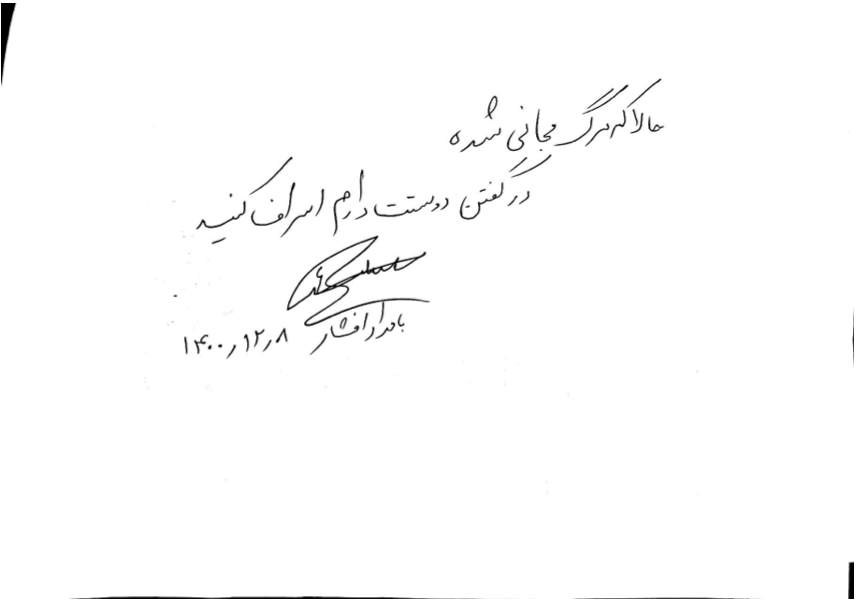 حالا که مرگ مجانی شده
در گفتن دوستت دارم اسراف کنید
بامداد افشار ۱۴۰۰٫۱۲٫۸